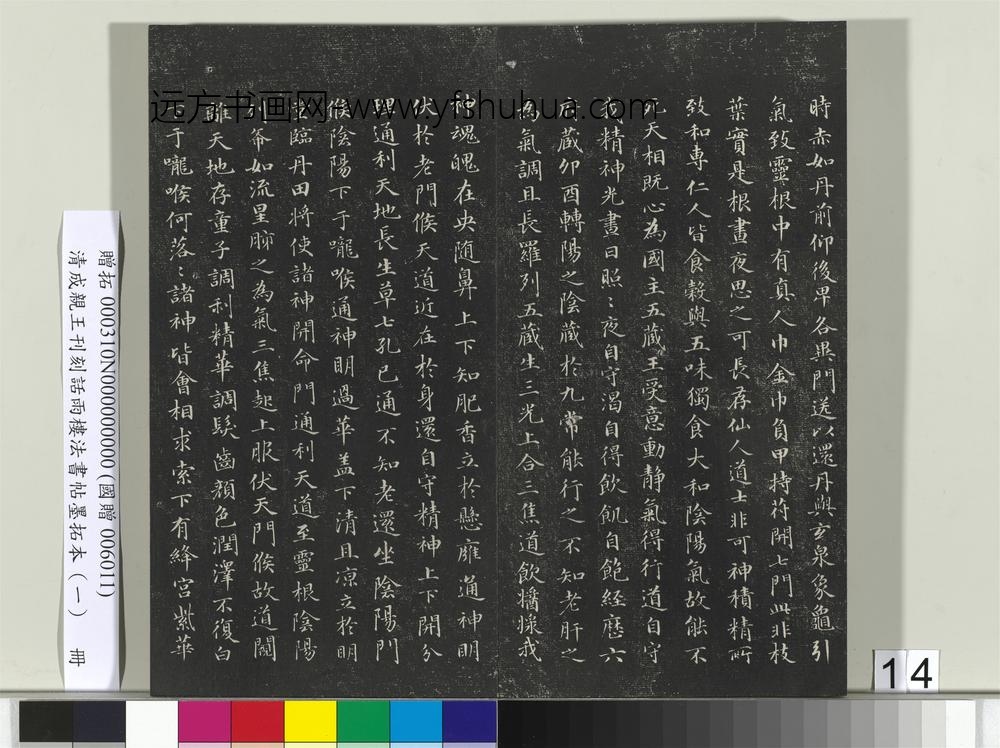 時赤如丹前仰後卑各異門送以還丹與玄泉象龜引
氣致靈根中有真人巾金巾負甲持符開七門此非枝
葉實是根晝夜思之可長存仙人道士非可神積精所
致和專仁人皆食穀與五味獨食大和陰陽氣故能不
死天相既心為國主五藏王受意動靜氣得行道自守
我精神光晝日照〻夜自守渴自得飲飢自飽經歷六
府藏卯酉轉陽之陰藏於九常能行之不知老肝之
為氣調且長羅列五藏生三光上合三焦道飲醬漿我
神魂魄在央随鼻上下知肥香立於懸廱通神明
伏於老門候天道近在於身還自守精神上下開分
理通利天地長生草七孔已通不知老還坐陰陽門
候陰陽下于嚨喉通神明過華盖下清且凉立於明
堂臨丹田將使諸神開命門通利天道至靈根陰陽
列布如流星肺之為氣三焦起上服伏天門候故道闚
離天地存童子調利精華調髮齒顏色潤澤不復白
下于嚨喉何落〻諸神皆會相求索下有絳宮紫華
远方书画网 www.yfshuhua.com
贈拓 000310N000000000 (國贈 006011)
清成親王刊刻話雨樓法書帖墨拓本 (一) 冊
14